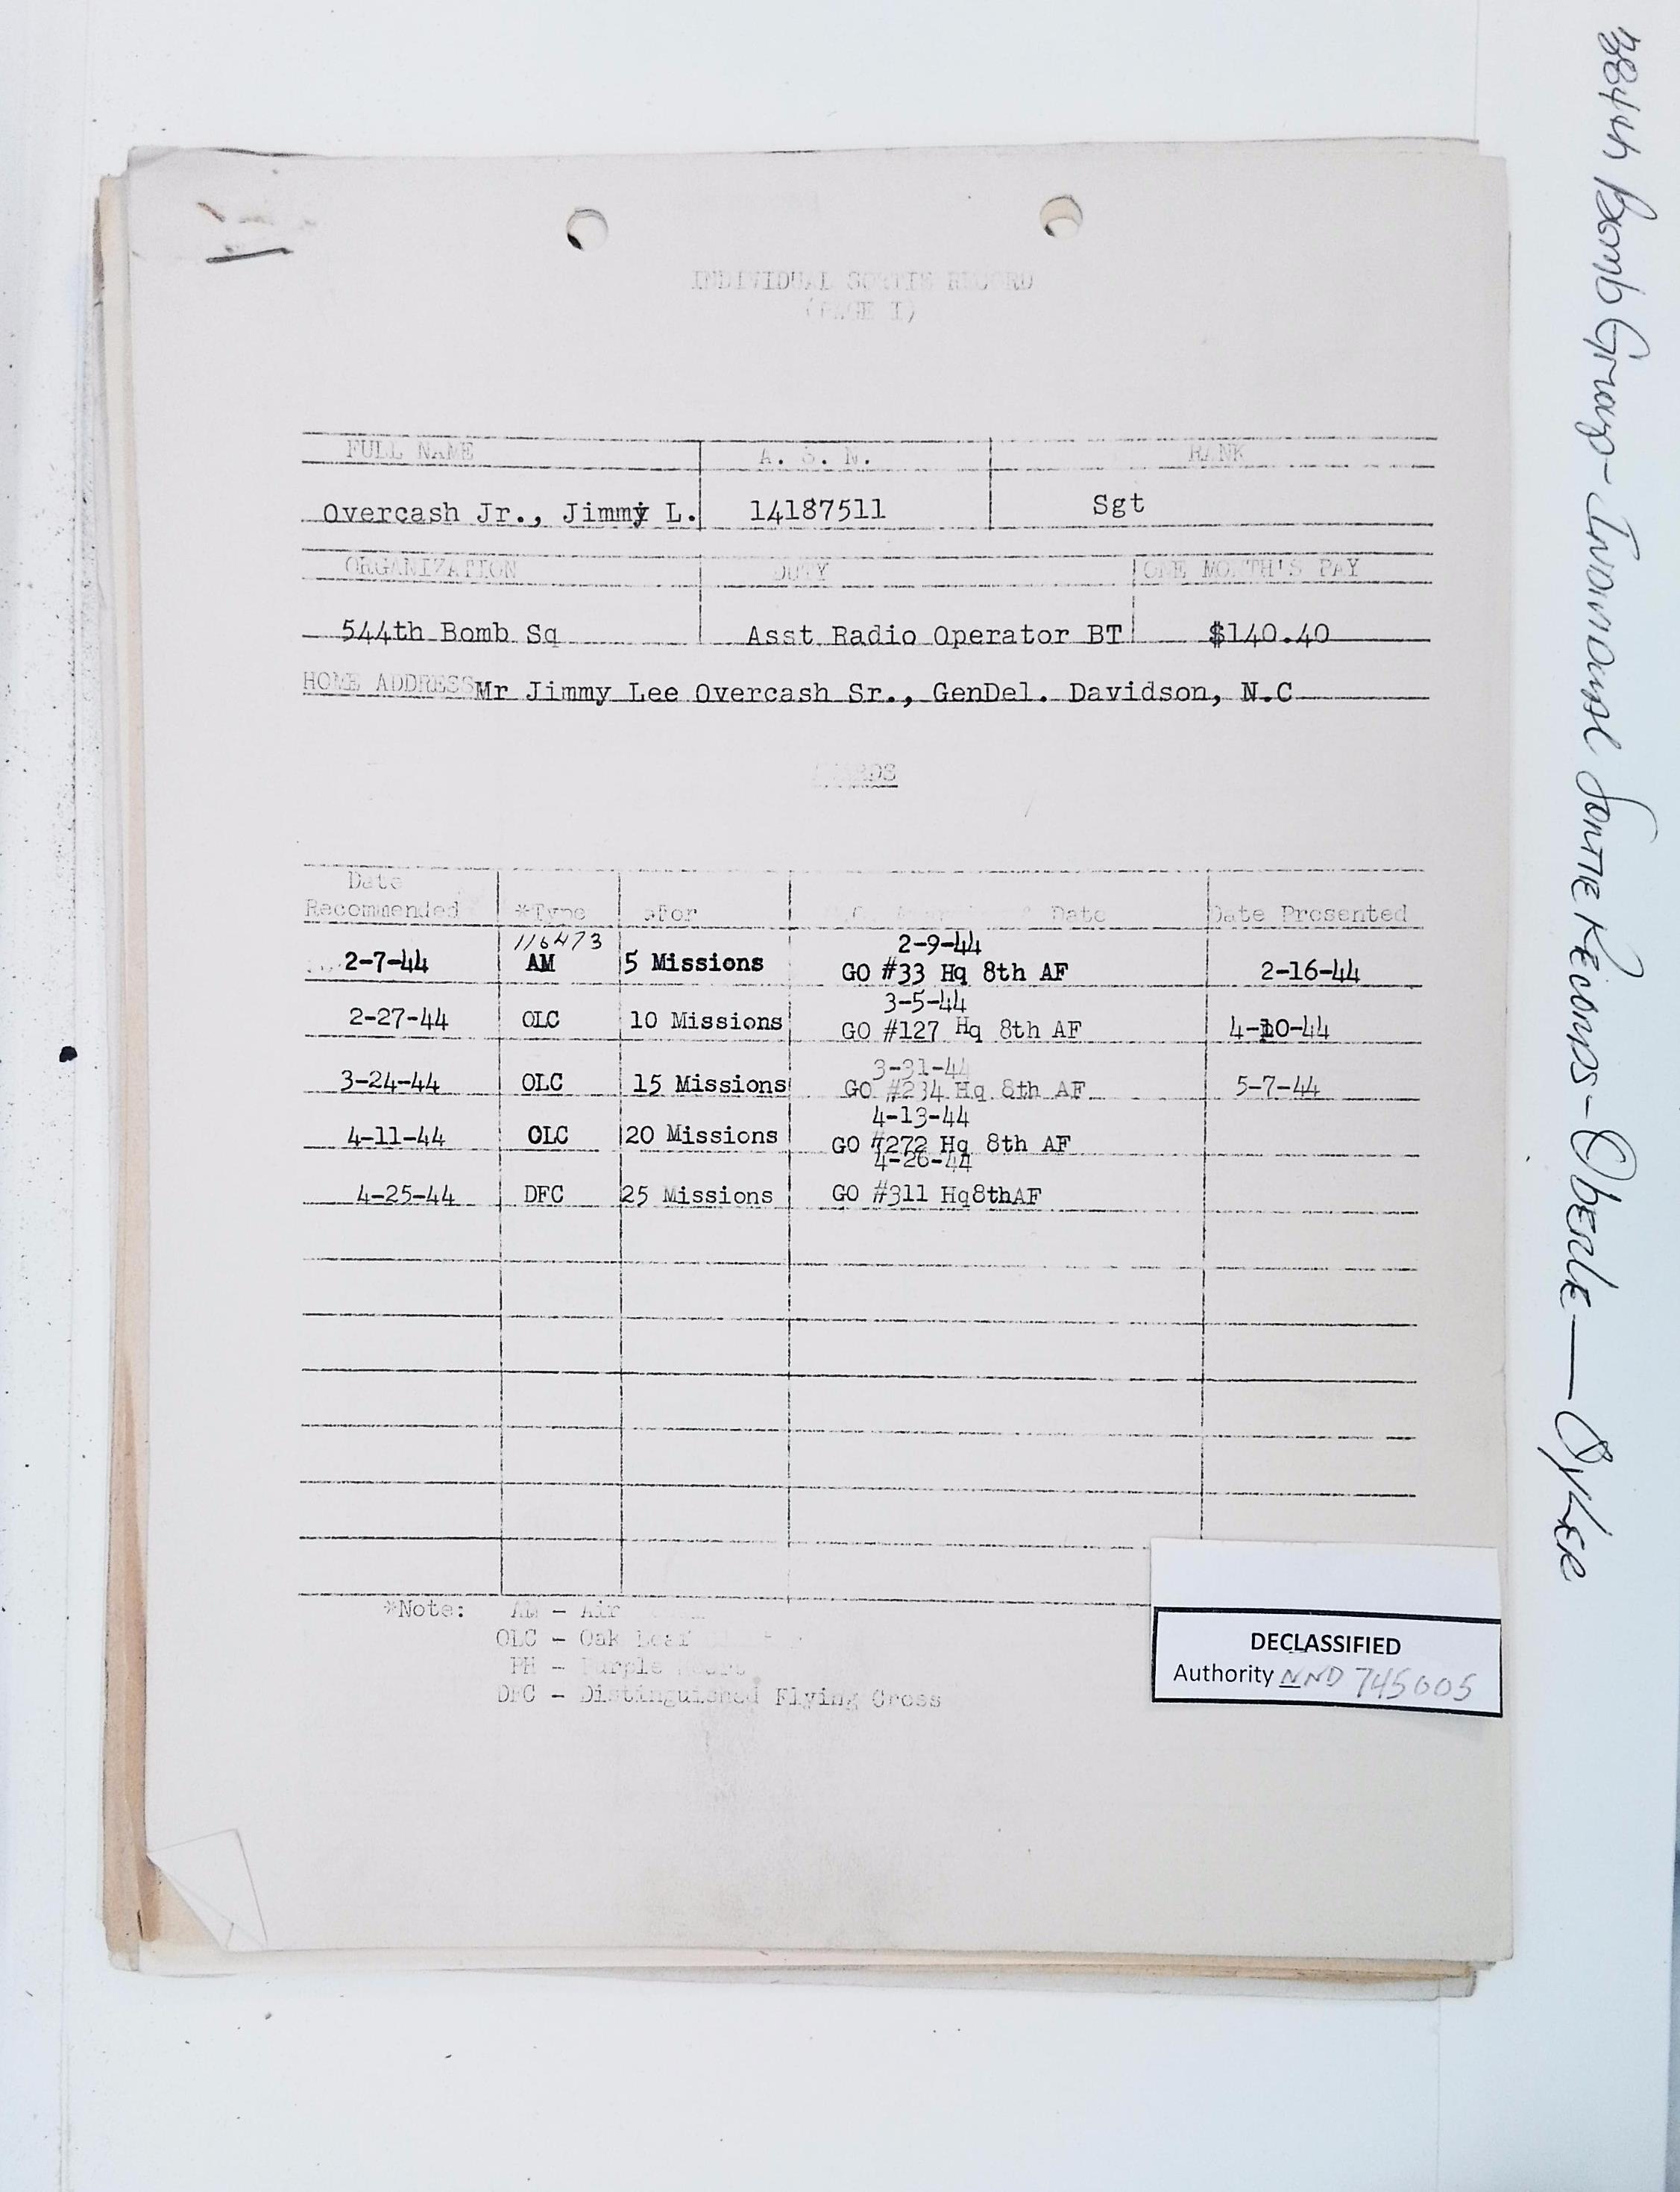 INDIVIDUAL SORTIE RECORD
(PAGE 1)
FULL NAME A. S. N. RANK
Overcash Jr., Jimmy L. 14187511 Sgt
ORGANIZATION DUTY ONE MONTH'S PAY
544th Bomb Sq Asst Radio Operator BT $140.40
HOME ADDRESS Mr Jimmy Lee Overcash Sr., GenDel. Davidson, N.C
AWARDS
Date
Recommended *Type For Date Date Presented
116473 2-9-44
2-7-44 AM 5 Missions GO #33 Hq 8th AF 2-16-44
3-5-44
2-27-44 OLC 10 Missions GO #127 Hq 8th AF 4-10-44
3-31-44
3-24-44 OLC 15 Missions GO #234 Hq 8th AF 5-7-44
4-13-44
4-11-44 OLC 20 Missions GO #272 Hq 8th AF
4-26-44
4-25-44 DFC 25 Missions GO #311 Hq8thAF
*Note: AM - Air
OLC - Oak Leaf
PH - Purple Heart
DFC - Distinguished Flying Cross
DECLASSIFIED
Authority NND 745005
384th Bomb Group - Individual Sortie Records - Oberle — Oyler